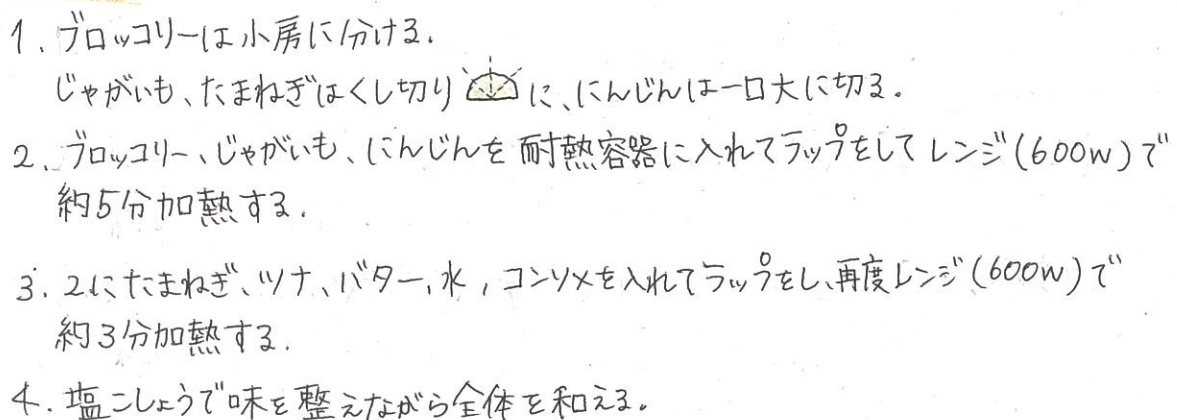 1. ブロッコリーは小房に分ける.
じゃがいも、たまねぎはくし切りに、にんじんは一口大に切る。
2. ブロッコリー、じゃがいも、にんじんを耐熱容器に入れてラップをしてレンジ(600w)で
約5分加熱する.
3. 2にたまねぎ、ツナ、バター、水, コンソメを入れてラップをし、再度レンジ(600w)で
約3分加熱する.
4. 塩こしょうで味を整えながら全体を和える。